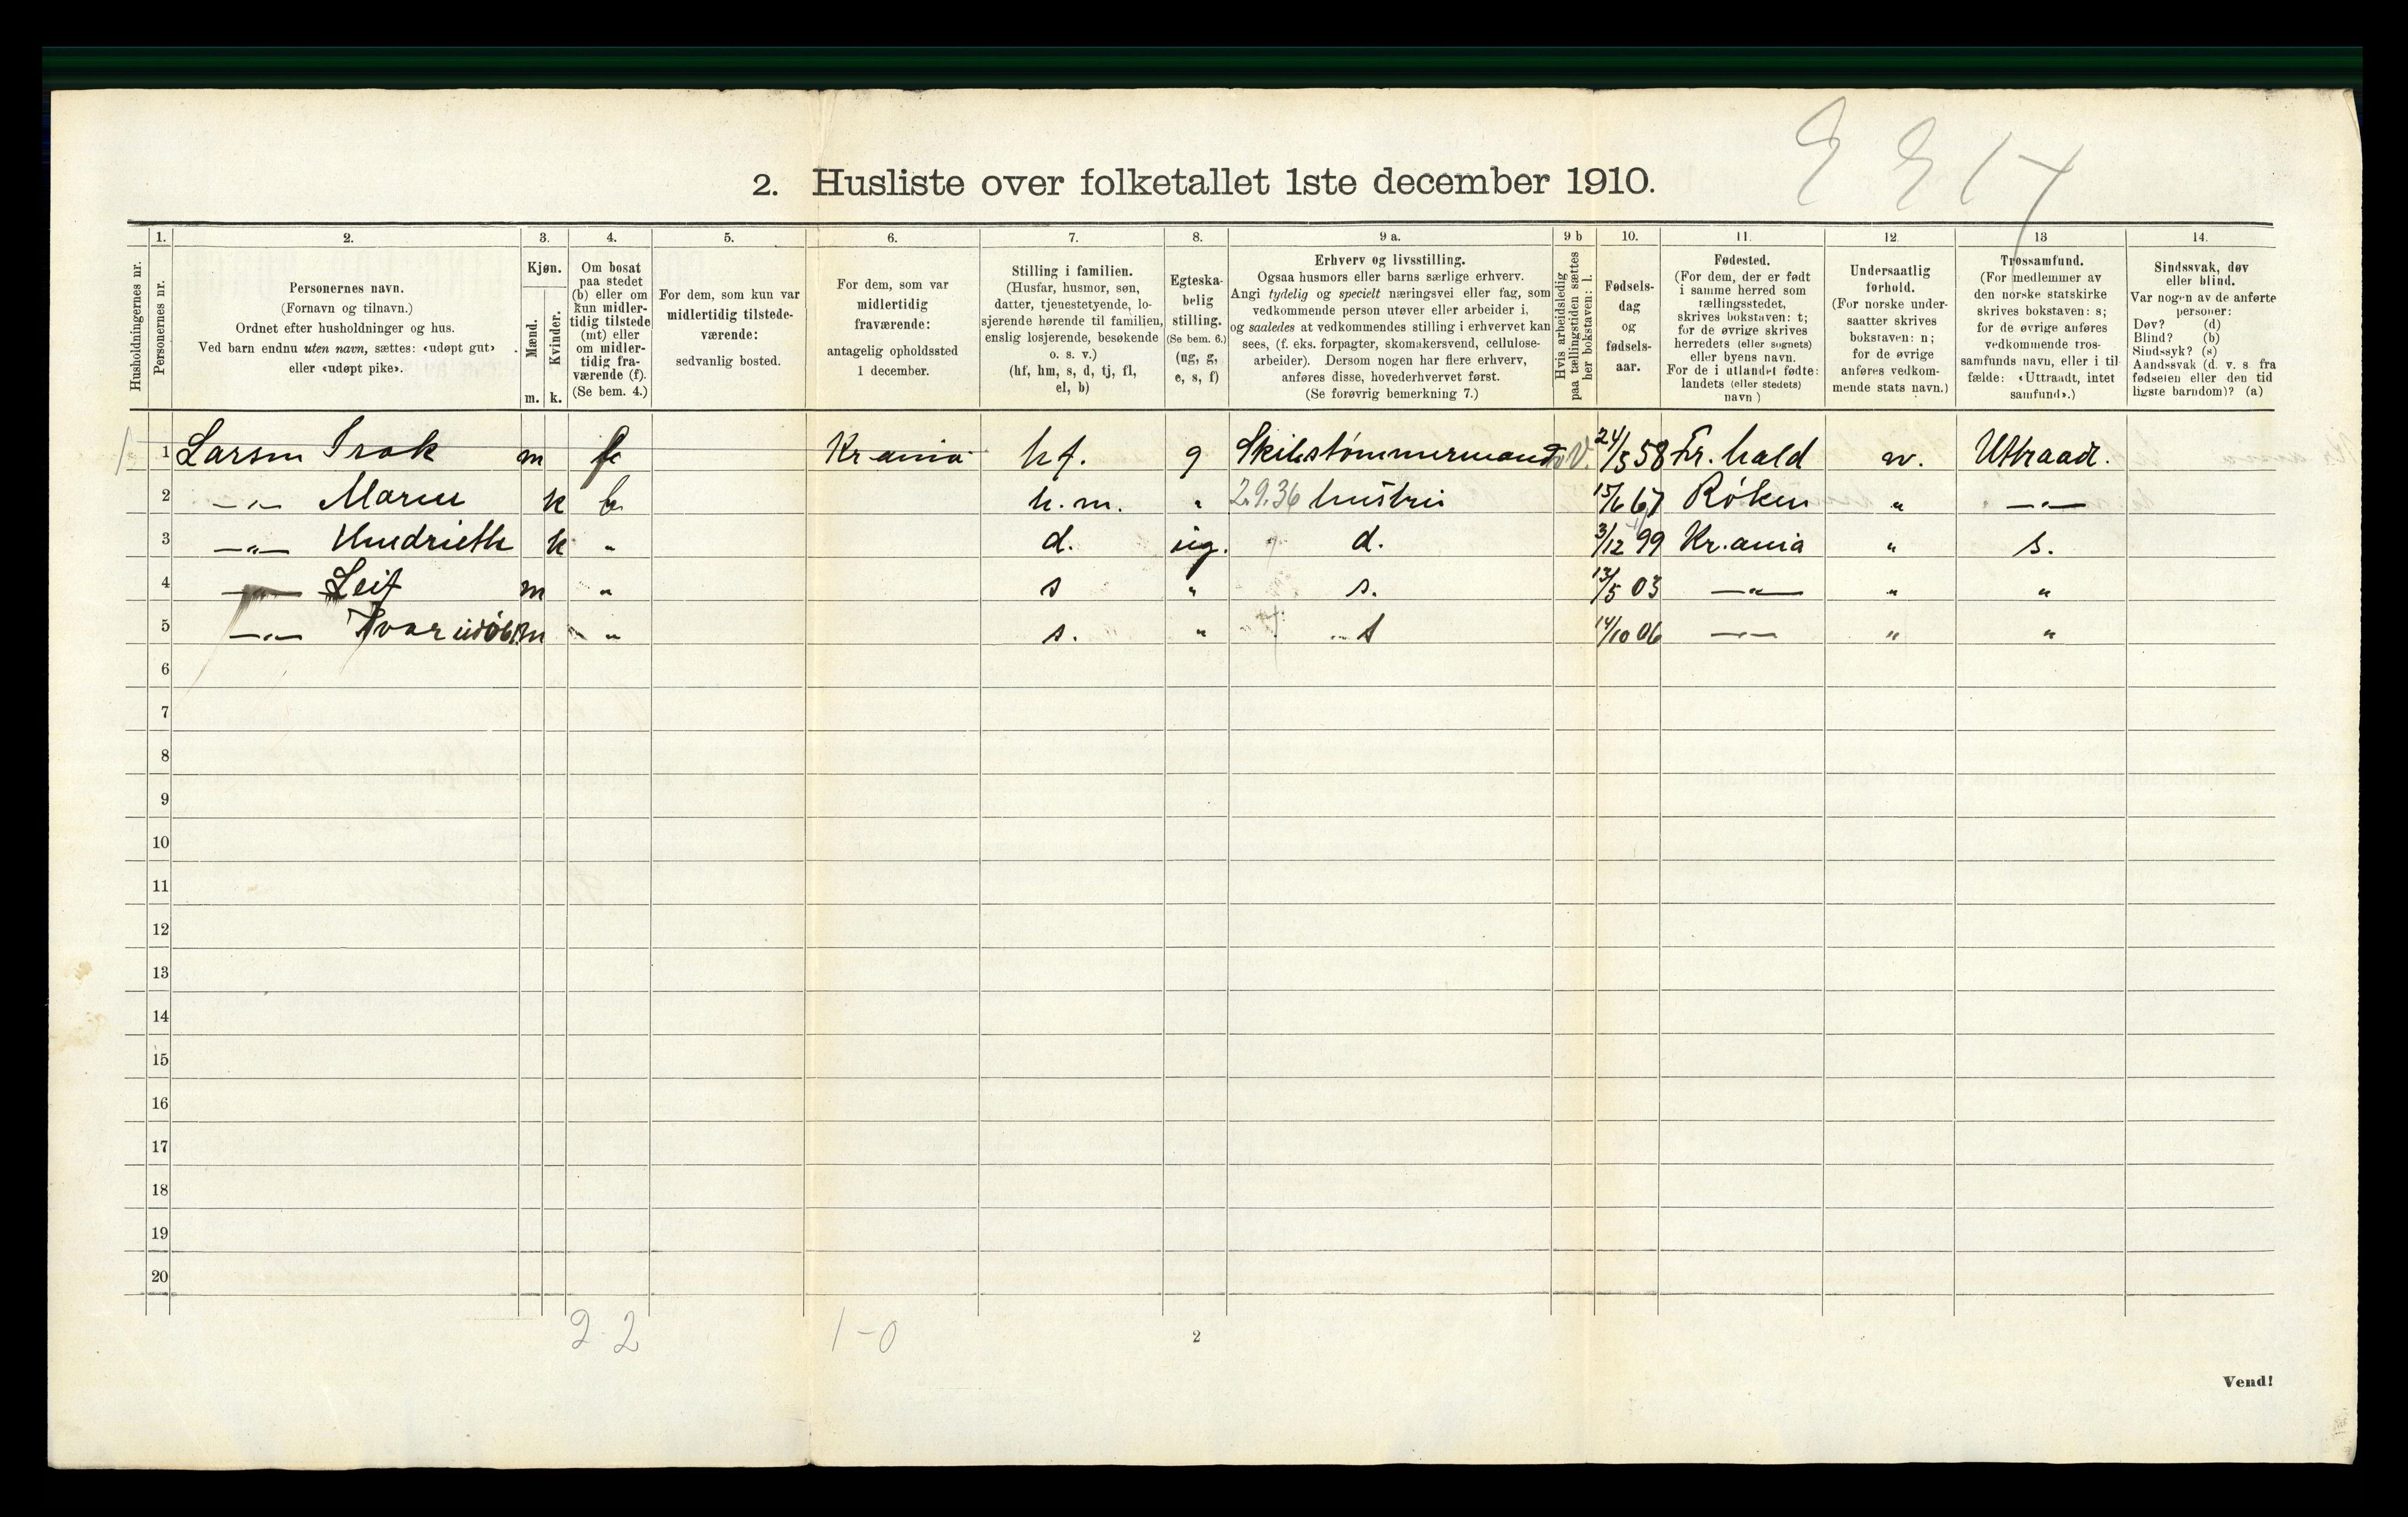 2. Husliste over folketallet 1ste december 1910.
Husholdningernes nr.
1. Personernes nr.
2. Personernes navn.
(Fornavn og tilnavn.)
Ordnet efter husholdninger og hus.
Ved barn endnu uten navn, sættes: «udøpt gut»
eller «udøpt pike».
3. Kjøn.
Mænd. m.
Kvinder. k.
4. Om bosat
paa stedet
(b) eller om
kun midler-
tidig tilstede
(mt) eller
om midler-
tidig fra-
værende (f).
(Se bem. 4.)
5. For dem, som kun var
midlertidig tilstede-
værende:
sedvanlig bosted.
6. For dem, som var
midlertidig
fraværende:
antagelig opholdssted
1 december.
7. Stilling i familien.
(Husfar, husmor, søn,
datter, tjenestetyende, lo-
sjerende hørende til familien,
enslig losjerende, besøkende
o. s. v.)
(hf, hm, s, d, tj, fl,
el, b)
8. Egteska-
belig
stilling.
(Se bem. 6.)
(ug, g,
e, s, f)
9 a. Erhverv og livsstilling.
Ogsaa husmors eller barns særlige erhverv.
Angi tydelig og specielt næringsvei eller fag, som
vedkommende person utøver eller arbeider i,
og saaledes at vedkommendes stilling i erhvervet kan
sees, (f. eks. forpagter, skomakersvend, cellulose-
arbeider). Dersom nogen har flere erhverv,
anføres disse, hovederhvervet først.
(Se forøvrig bemerkning 7.)
9 b Hvis arbeidsledig
paa tællingstiden sættes
her bokstaven: l.
10. Fødsels-
dag
og
fødsels-
aar.
11. Fødested.
(For dem, der er født
i samme herred som
tællingsstedet,
skrives bokstaven: t;
for de øvrige skrives
herredets (eller sognets)
eller byens navn.
For de i utlandet fødte:
landets (eller stedets)
navn)
12. Undersaatlig
forhold.
(For norske under-
saatter skrives
bokstaven: n;
for de øvrige
anføres vedkom-
mende stats navn.)
13 Trossamfund.
(For medlemmer av
den norske statskirke
skrives bokstaven: s;
for de øvrige anføres
vedkommende tros-
samfunds navn, eller i til
fælde: «Uttraadt, intet
samfund».)
14. Sindssvak, døv
eller blind.
Var nogen av de anførte
personer:
Døv? (d)
Blind? (b)
Sindssyk? (s)
Aandssvak (d. v. s fra
fødselen eller den tid
ligste barndom)? (a)
1 1 Larsen Isak m Kr-ania hf. g Skibstømmermand 24/5 58 Fr. hald n. Utraadt.
2 —"— Maren k b h.m. " 2.9.36 hustru 15/6 67 Røken " —"—
3 —"— k " d. ug. d. 3/12 99 Kr.ania " s.
4 —"— Leif m " s " s. 13/5 03 —"— " "
5 —"— Ivar m " s. " s 14/10 06 —"— " "
6
7
8
9
10
11
12
13
14
15
16
17
18
19
20
2-2 1-0
2
Vend!